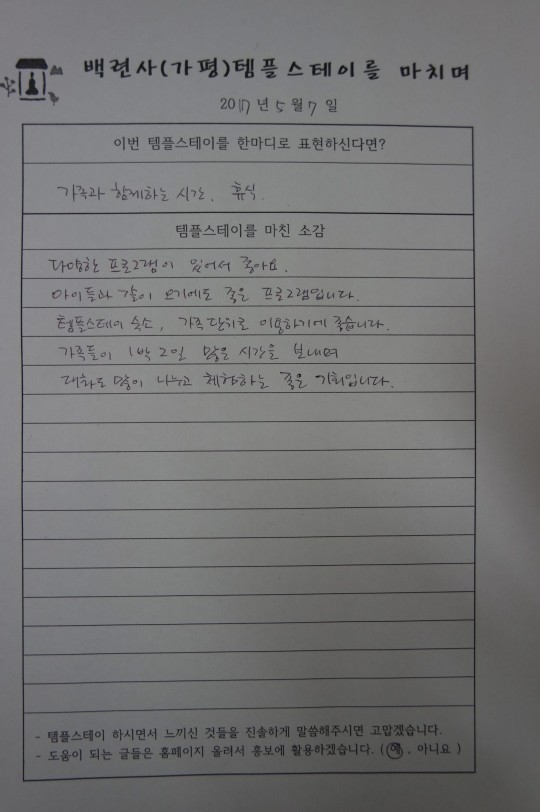 백련사(가평)템플스테이를 마치며
2017년 5월 7일
이번 템플스테이를 한마디로 표현하신다면?
가족과 함께하는 시간, 휴식.
템플스테이를 마친 소감
다양한 프로그램이 있어서 좋아요.
아이들과 같이 오기에도 좋은 프로그램입니다.
템플스테이 숙소, 가족단위로 이용하기에 좋습니다.
가족들이 1박 2일 많은 시간을 보내며
대화도 많이 나누고 체험하는 좋은 기회입니다.
- 템플스테이 하시면서 느끼신 것들을 진솔하게 말씀해주시면 고맙겠습니다.
- 도움이 되는 글들은 홈페이지 올려서 홍보에 활용하겠습니다. (예, 아니요)